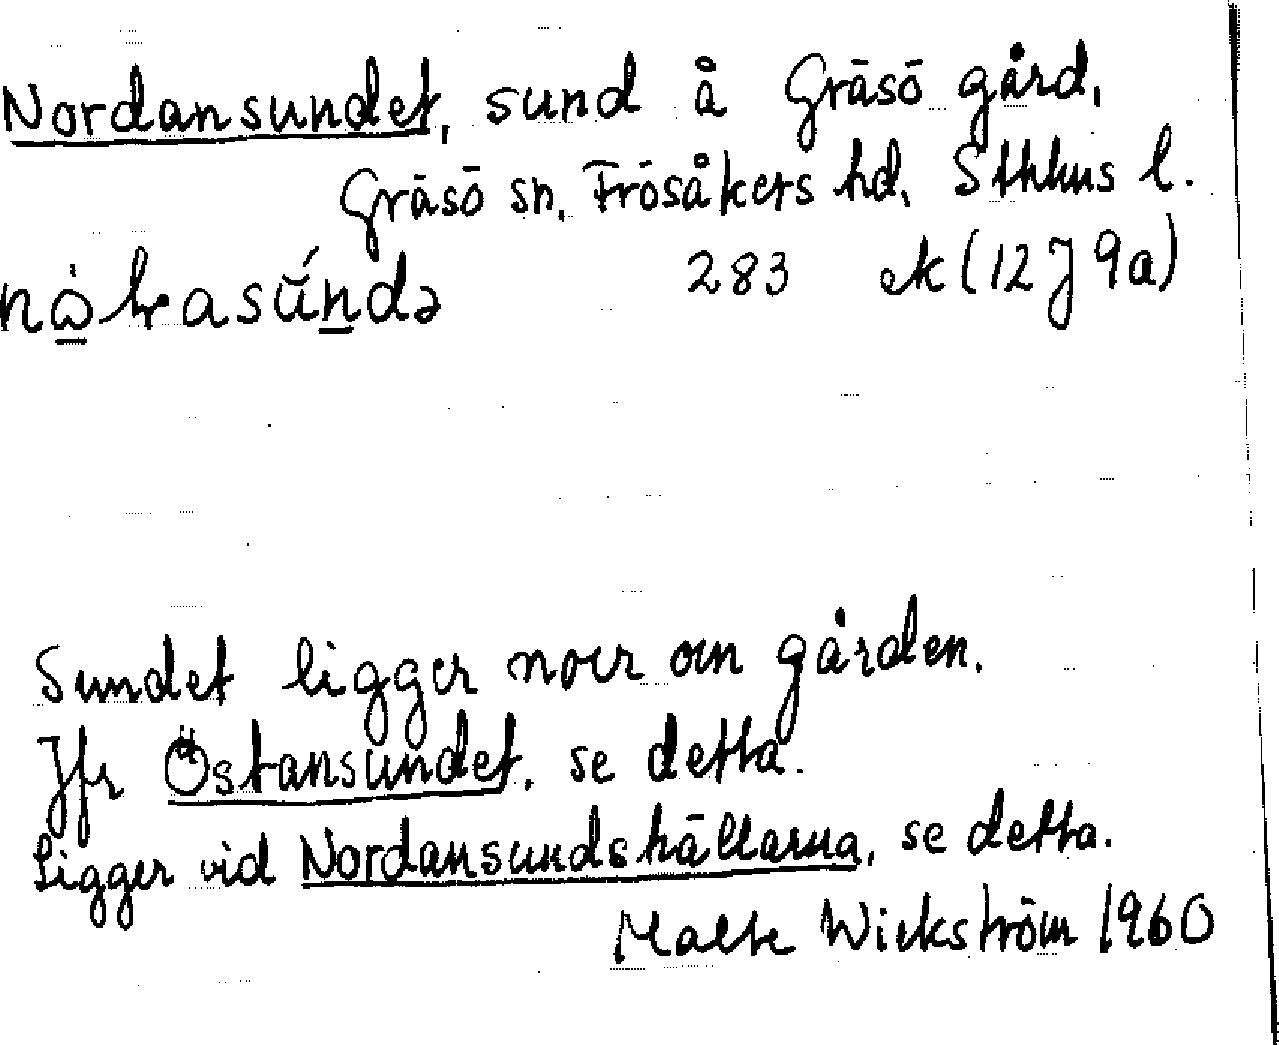 Nordansundet, sund å Gräsö gård,
Gräsö sn, Frösåkers hd, Sthlms l.
283 ek (12 J 9a)
Sundet ligger norr om gården.
Jfr Östansundet, se detta.
Ligger vid Nordansundshällarna, se detta.
Malte Wickström 1960